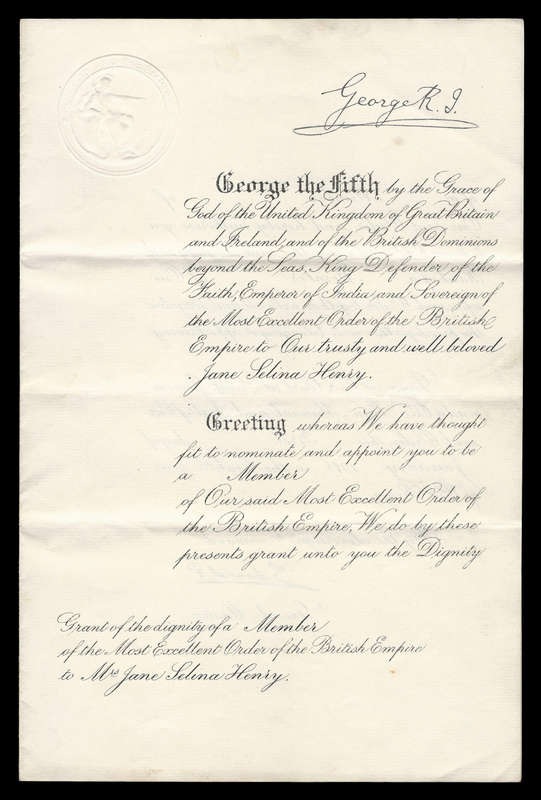 George R. I.
George the Fifth by the Grace of
God of the United Kingdom of Great Britain
and Ireland, and of the British Dominions
beyond the Seas, King Defender of the
Faith, Emperor of India, and Sovereign of
the Most Excellent Order of the British
Empire to Our trusty and well beloved
Jane Selina Henry.
Greeting whereas We have thought
fit to nominate and appoint you to be
a Member
of Our said Most Excellent Order of
the British Empire, We do by these
presents grant unto you the Dignity
Grant of the dignity of a Member
of the Most Excellent Order of the British Empire
to Mrs Jane Selina Henry.